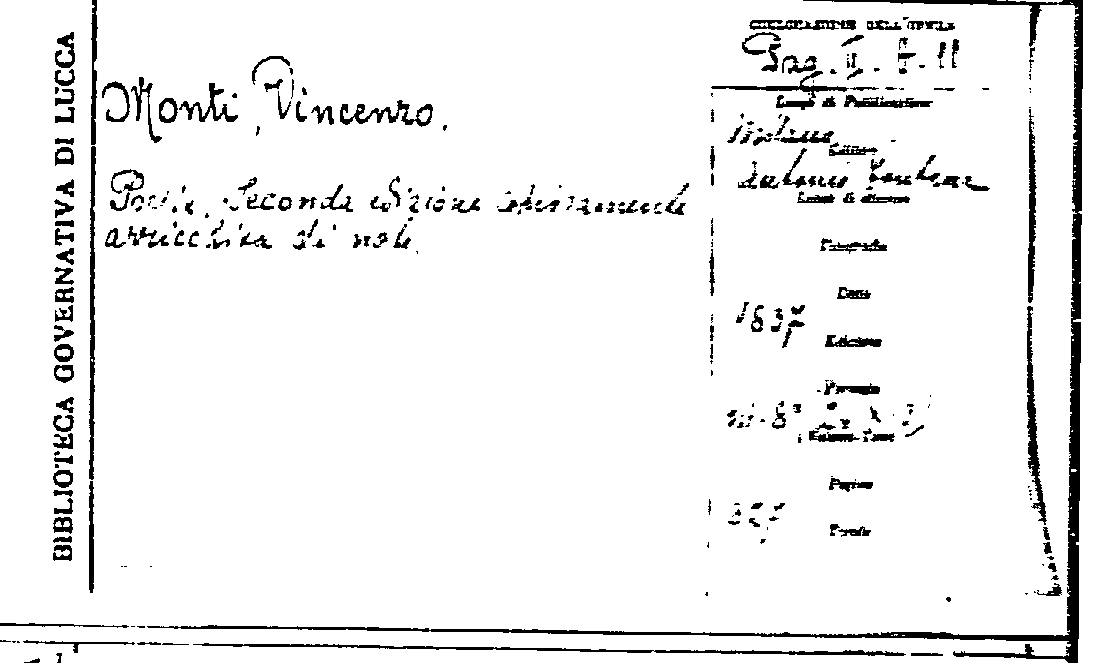 BIBLIOTECA GOVERNATIVA DI LUCCA
Monti, Vincenzo.
Poesie. Seconda edizione
arricchita di note.
Pag. I. F. 11
Luogo di Pubblicazione
Milano
Editore
Antonio Fontana
Luogo di stampa
Tipografia
Data
1837
Edizione
Formato
in-8°
Volume-Tomo
Pagine
357
Tavole